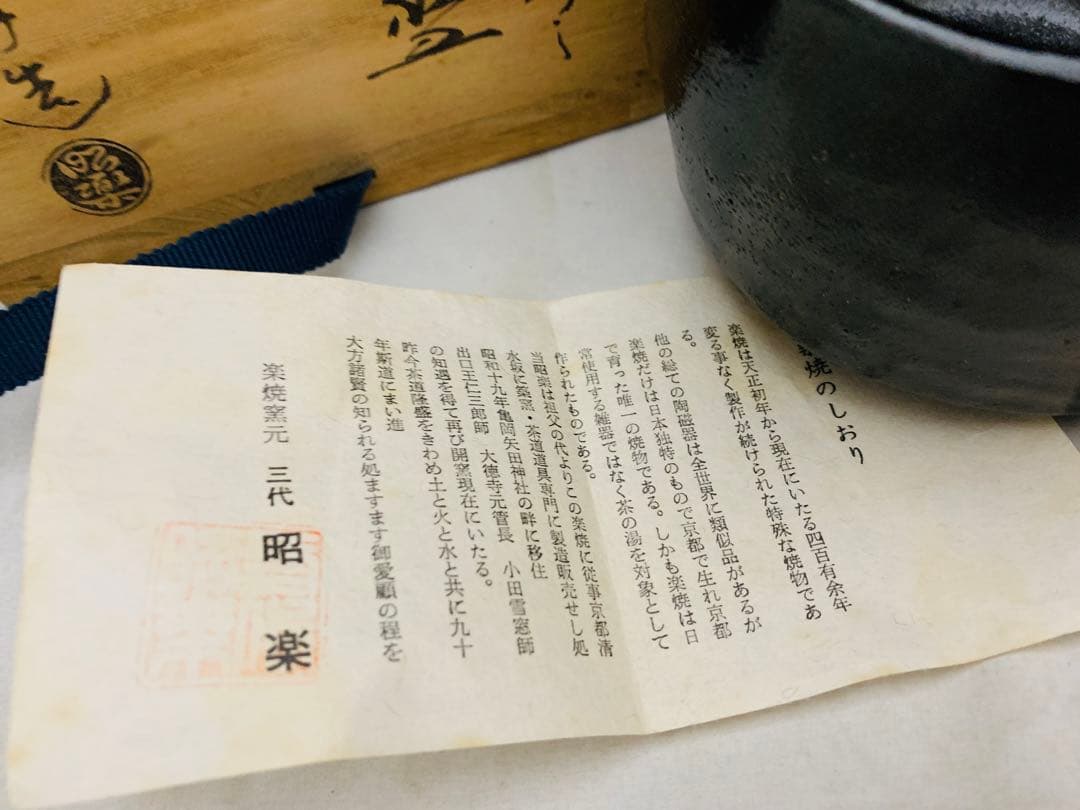 焼のしおり
楽焼は天正初年から現在にいたる四百有余年
変る事なく製作が続けられた特殊な焼物であ
る。
他の総ての陶磁器は全世界に類似品があるが
楽焼だけは日本独特のもので京都で生れ京都
で育った唯一の焼物である。しかも楽焼は日
常使用する雑器ではなく茶の湯を対象として
作られたものである。
当昭楽は祖父の代よりこの楽焼に従事京都清
水坂に築窯・茶道道具専門に製造販売せし処
昭和十九年亀岡矢田神社の畔に移住
出口王仁三郎師 大徳寺元管長 小田雪窓師
の知遇を得て再び開窯現在にいたる。
昨今茶道隆盛をきわめ土と火と水と共に九十
年斯道にまい進
大方諸賢の知られる処ますます御愛顧の程を
楽焼窯元 三代 昭楽
造
昭楽